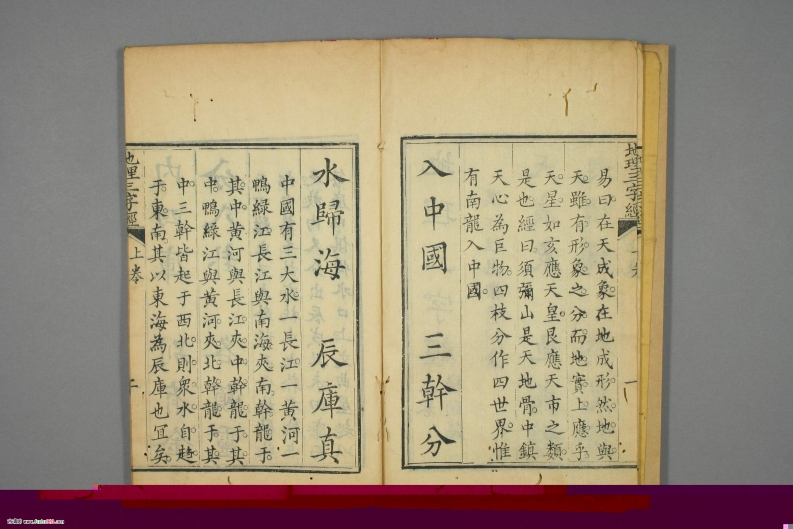 地理三字經
易曰在天成象在地成形然地與
天雖有形象之分而地實上應乎
天星如亥應天皇艮應天市之類
是也經曰須彌山是天地骨中鎮
天心為巨物四枝分作四世界惟
有南龍入中國
入中國 三幹分
水歸海 辰庫真
中國有三大水一長江一黃河一
鴨緑江長江與南海夾南幹龍于
其中黃河與長江夾中幹龍于其
中鴨緑江與黃河夾北幹龍于其
中三幹皆起于西北則衆水自趋
于東南其以東海為辰庫也宜矣
地理三字經 上卷